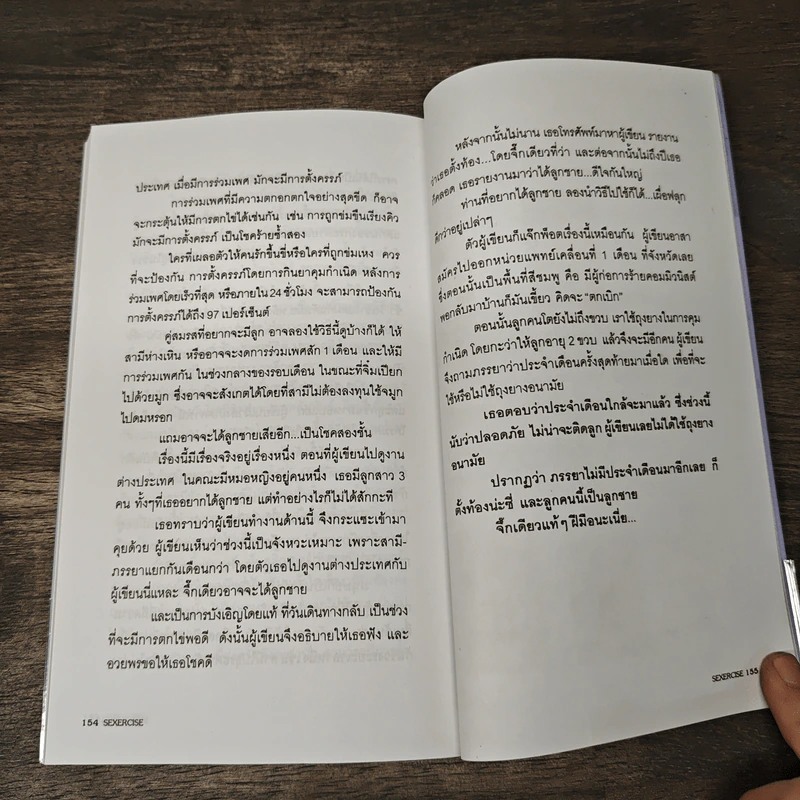 ประเทศ เมื่อมีการร่วมเพศ มักจะมีการตั้งครรภ์
การร่วมเพศที่มีความตกอกตกใจอย่างสุดขีด ก็อาจ
จะกระตุ้นให้มีการตกไข่ได้เช่นกัน เช่น การถูกข่มขืนเรียงคิว
มักจะมีการตั้งครรภ์ เป็นโชคร้ายซ้ำสอง
ใครที่เผลอตัวให้คนรักขึ้นขี่หรือใครที่ถูกข่มเหง ควร
ที่จะป้องกัน การตั้งครรภ์โดยการกินยาคุมกำเนิด หลังการ
ร่วมเพศโดยเร็วที่สุด หรือภายใน 24 ชั่วโมง จะสามารถป้องกัน
การตั้งครรภ์ได้ถึง 97 เปอร์เซ็นต์
คู่สมรสที่อยากจะมีลูก อาจลองใช้วิธีนี้ดูบ้างก็ได้ ให้
สามีห่างเหิน หรืออาจจะงดการร่วมเพศสัก 1 เดือน และให้มี
การร่วมเพศกัน ในช่วงกลางของรอบเดือน ในขณะที่จิ๋มเปียก
ไปด้วยมูก ซึ่งอาจจะสังเกตได้โดยที่สามีไม่ต้องลงทุนใช้จมูก
ไปดมหรอก
แถมอาจจะได้ลูกชายเสียอีก...เป็นโชคสองชั้น
เรื่องนี้มีเรื่องจริงอยู่เรื่องหนึ่ง ตอนที่ผู้เขียนไปดูงาน
ต่างประเทศ ในคณะมีหมอหญิงอยู่คนหนึ่ง เธอมีลูกสาว 3
คน ทั้งๆที่เธออยากได้ลูกชาย แต่ทำอย่างไรก็ไม่ได้สักกะที
เธอทราบว่าผู้เขียนทำงานด้านนี้ จึงกระแซะเข้ามา
คุยด้วย ผู้เขียนเห็นว่าช่วงนี้เป็นจังหวะเหมาะ เพราะสามี-
ภรรยาแยกกันเดือนกว่า โดยตัวเธอไปดูงานต่างประเทศกับ
ผู้เขียนนี่แหละ จึ๊กเดียวอาจจะได้ลูกชาย
และเป็นการบังเอิญโดยแท้ ที่วันเดินทางกลับ เป็นช่วง
ที่จะมีการตกไข่พอดี ดังนั้นผู้เขียนจึงอธิบายให้เธอฟัง และ
อวยพรขอให้เธอโชคดี
154 SEXERCISE
หลังจากนั้นไม่นาน เธอโทรศัพท์มาหาผู้เขียน รายงาน
ว่าเธอตั้งท้อง...โดยจึ๊กเดียวที่ว่า และต่อจากนั้นไม่ถึงปีเธอ
ก็คลอด เธอรายงานมาว่าได้ลูกชาย...ดีใจกันใหญ่
ท่านที่อยากได้ลูกชาย ลองนำวิธีไปใช้ก็ได้...เผื่อฟลุก
ดีกว่าอยู่เปล่าๆ
ตัวผู้เขียนก็แจ๊กพ็อตเรื่องนี้เหมือนกัน ผู้เขียนอาสา
สมัครไปออกหน่วยแพทย์เคลื่อนที่ 1 เดือน ที่จังหวัดเลย
ซึ่งตอนนั้นเป็นพื้นที่สีชมพู คือ มีผู้ก่อการร้ายคอมมิวนิสต์
พอกลับมาบ้านก็มันเขี้ยว คิดจะ "ตกเบิก"
ตอนนั้นลูกคนโตยังไม่ถึงขวบ เราใช้ถุงยางในการคุม
กำเนิด โดยกะว่าให้ลูกอายุ 2 ขวบ แล้วจึงจะมีอีกคน ผู้เขียน
จึงถามภรรยาว่าประจำเดือนครั้งสุดท้ายมาเมื่อใด เพื่อที่จะ
ใช้หรือไม่ใช้ถุงยางอนามัย
เธอตอบว่าประจำเดือนใกล้จะมาแล้ว ซึ่งช่วงนี้
นับว่าปลอดภัย ไม่น่าจะติดลูก ผู้เขียนเลยไม่ได้ใช้ถุงยาง
อนามัย
ปรากฏว่า ภรรยาไม่มีประจำเดือนมาอีกเลย ก็
ตั้งท้องน่ะซี่ และลูกคนนี้เป็นลูกชาย
จึ๊กเดียวแท้ๆ ฝีมือนะเนี่ย...
SEXERCISE 155